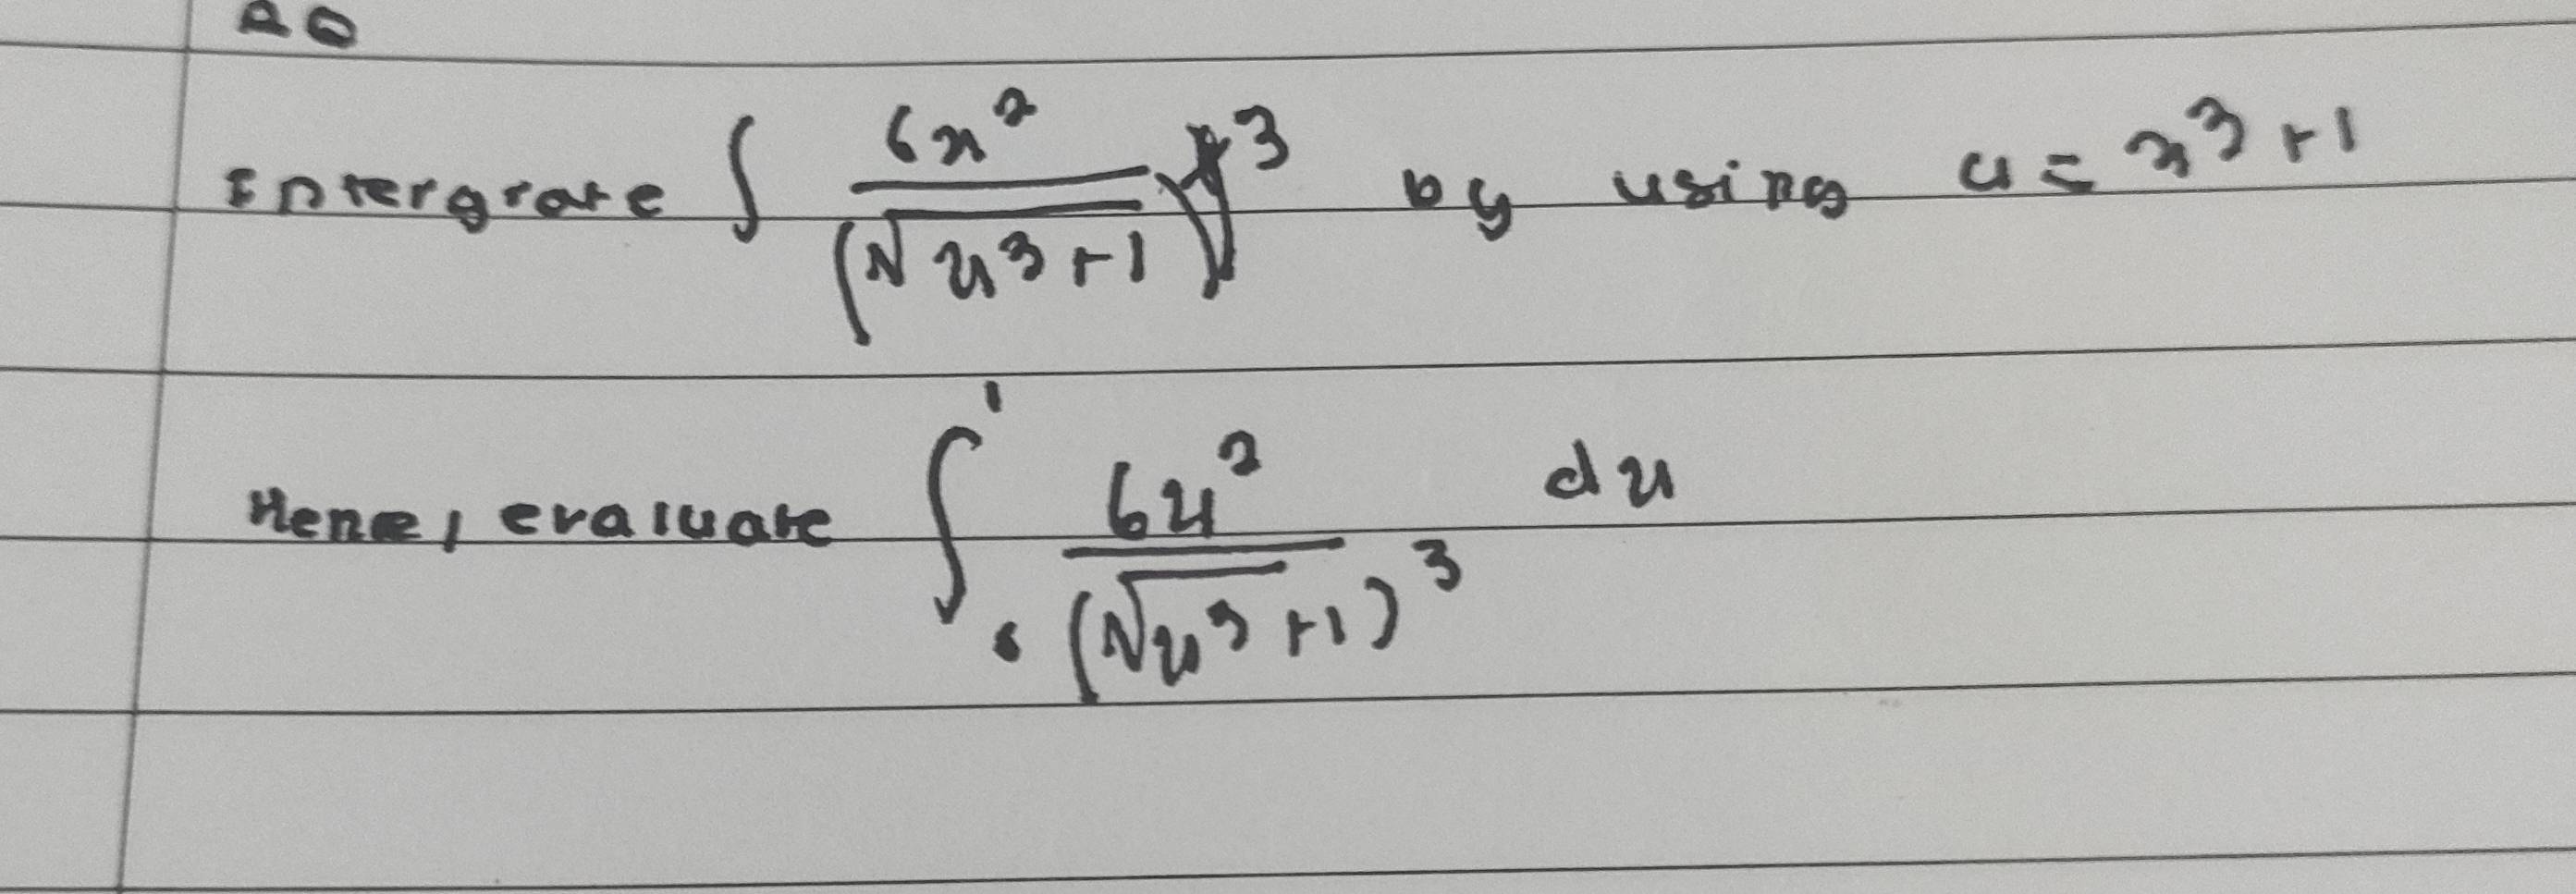 Intergrate ∫ 6x² / (√x³+1)³ by using u = x³+1
Hence, evaluate ∫₀¹ 6x² / (√x³+1)³ dx